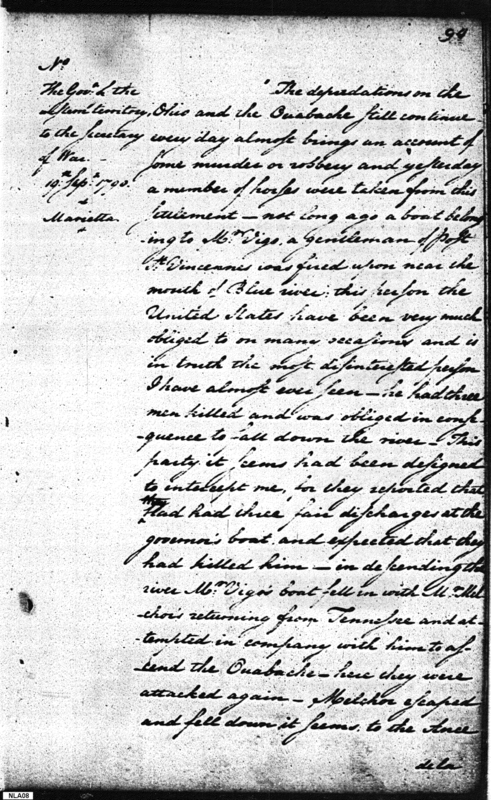 94
No
The Govr. of the
western territory,
to the Secretary
of War.
19th Sept. 1790.
Marietta
"The depredations on the
Ohio and the Ouabache still continue
every day almost brings an account of
some murder or robbery and yesterday
a member of horses were taken from this
settlement — not long ago a boat belong
ing to Mr. Vigo, a gentleman of post
St. Vincennes was fired upon near the
mouth of Blue river; this person the
United States have been very much
obliged to on many occasions and is
in truth the most disinterested person
I have almost ever seen — he had three
men killed and was obliged in conse-
-quence to fall down the river — This
party it seems had been designed
to intercept me, for they reported that
they
had had three fair discharges at the
governor's boat and expected that they
had killed him — in descending the
river Mr. Vigo's boat fell in with Mr. Mel
-choir returning from Tennessee and at-
-tempted in company with him to as-
-cend the Ouabache — here they were
attacked again — Melchor escaped
and fell down it seems, to the Ance
de la
NLA08